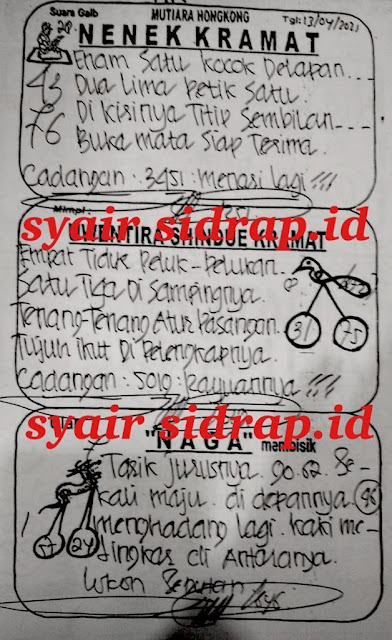 Suara Gaib
MUTIARA HONGKONG
Tgl: 13/04/2021
NENEK KRAMAT
Enam Satu kocok Delapan---
43 Dua Lima Petik Satu.
Di Kirinya Titip Sembilan---
76 Buka Mata Siap Terima.
Cadangan : 3451 : menasi lagi !!!
syair sidrap.id
KRAMAT
Empat Tiduk peluk-pelukan.
Satu Tiga Di Sampingnya.
Tenang-Tenang Atur Pasangan.
31 75
Tujuh ikut Di Pelengkapnya.
Cadangan : 5019 : Rayuannya !!!
syair sidrap.id
"NAGA" membisik
Tarik Jurusnya. 90.62. Se-
kali maju. di depannya
menghadang lagi. kaki me-
24
di Antaranya.